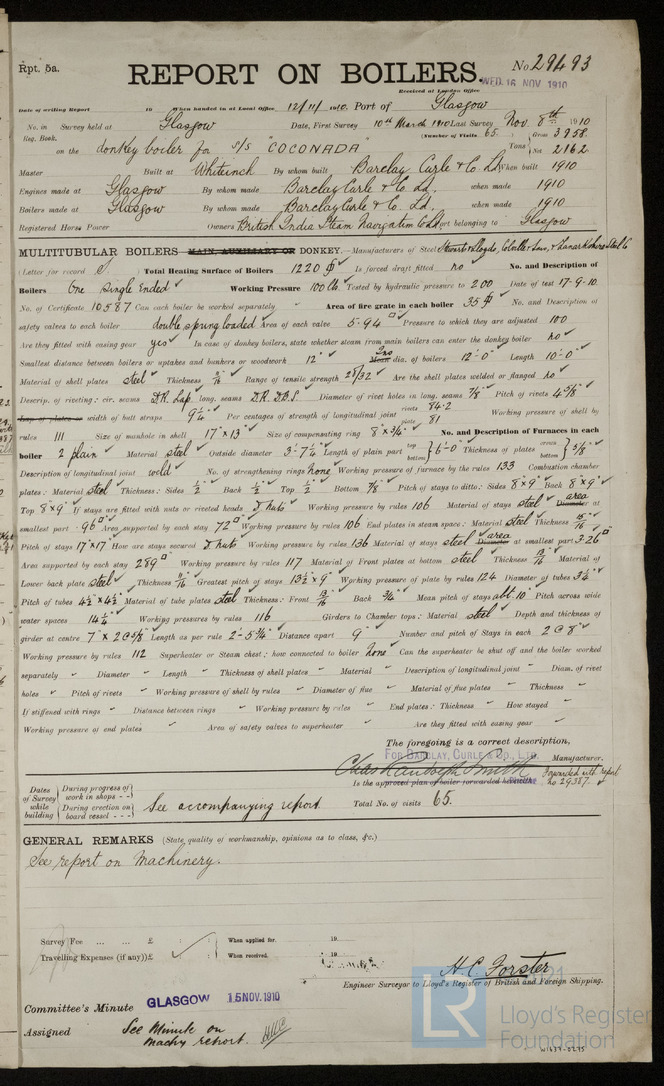 Rpt. 5a.
REPORT ON BOILERS.
No. 29493
Received at London Office WED. 16 NOV 1910
Date of writing Report 19 When handed in at Local Office 12/11/1910. Port of Glasgow
No. in Survey held at Glasgow Date, First Survey 10th March 1910 Last Survey Nov. 8th 1910
Reg. Book. (Number of Visits 65.
on the donkey boiler for s/s "COCONADA" Tons { Gross 3958. Net 2162
Master Built at Whiteinch By whom built Barclay Curle & Co Ld When built 1910
Engines made at Glasgow By whom made Barclay Curle & Co. Ld. when made 1910
Boilers made at Glasgow By whom made Barclay Curle & Co. Ld. when made 1910
Registered Horse Power Owners British India Steam Navigation Co Ld Port belonging to Glasgow
MULTITUBULAR BOILERS MAIN, AUXILIARY OR DONKEY.—Manufacturers of Steel Stewart & Lloyds, Colville & Sons, & Lanarkshire Steel Co
(Letter for record S) Total Heating Surface of Boilers 1220 Is forced draft fitted no No. and Description of
Boilers One Single Ended Working Pressure 100 lbs. Tested by hydraulic pressure to 200 Date of test 17-9-10.
No. of Certificate 10587 Can each boiler be worked separately Area of fire grate in each boiler 35 No. and Description of
safety valves to each boiler double spring loaded Area of each valve 5.94 Pressure to which they are adjusted 100
Are they fitted with easing gear yes In case of donkey boilers, state whether steam from main boilers can enter the donkey boiler no
Smallest distance between boilers or uptakes and bunkers or woodwork 12" Mean Ins dia. of boilers 12'-0" Length 10'-0"
Material of shell plates steel Thickness Range of tensile strength 28/32 Are the shell plates welded or flanged no
Descrip. of riveting: cir. seams D.R. Lap. long. seams D.R. D.B.S. Diameter of rivet holes in long. seams 7/8 Pitch of rivets 4 5/8
Lap of plates or width of butt straps 9 1/4 Per centages of strength of longitudinal joint rivets 84.2 plate 81 Working pressure of shell by
rules 111 Size of manhole in shell 17" x 13" Size of compensating ring 8" x 3/4" No. and Description of Furnaces in each
boiler 2 plain Material steel Outside diameter 3'-7 1/4" Length of plain part top bottom } 6'-0" Thickness of plates crown bottom } 5/8"
Description of longitudinal joint weld No. of strengthening rings none Working pressure of furnace by the rules 133 Combustion chamber
plates: Material steel Thickness: Sides 1/2 Back 1/2 Top 1/2 Bottom 7/8 Pitch of stays to ditto: Sides 8" x 9" Back 8" x 9"
Top 8" x 9" If stays are fitted with nuts or riveted heads D. nuts Working pressure by rules 106 Material of stays steel Diameter area at
smallest part .96 Area supported by each stay 72 Working pressure by rules 106 End plates in steam space: Material steel Thickness 15/16
Pitch of stays 17" x 17" How are stays secured D. nuts Working pressure by rules 136 Material of stays steel Diameter area at smallest part 3.26
Area supported by each stay 289 Working pressure by rules 117 Material of Front plates at bottom steel Thickness 13/16 Material of
Lower back plate steel Thickness Greatest pitch of stays 13 1/2 x 9" Working pressure of plate by rules 124 Diameter of tubes 3 1/4
Pitch of tubes 4 1/2 x 4 1/2 Material of tube plates steel Thickness: Front 13/16 Back 3/4 Mean pitch of stays abt. 10" Pitch across wide
water spaces 14 1/4 Working pressures by rules 116 Girders to Chamber tops: Material steel Depth and thickness of
girder at centre 7" x 2 @ 5/8 Length as per rule 2'-5 3/4" Distance apart 9" Number and pitch of Stays in each 2 @ 8"
Working pressure by rules 112 Superheater or Steam chest; how connected to boiler None Can the superheater be shut off and the boiler worked
separately Diameter Length Thickness of shell plates Material Description of longitudinal joint Diam. of rivet
holes Pitch of rivets Working pressure of shell by rules Diameter of flue Material of flue plates Thickness
If stiffened with rings Distance between rings Working pressure by rules End plates: Thickness How stayed
Working pressure of end plates Area of safety valves to superheater Are they fitted with easing gear
The foregoing is a correct description,
FOR BARCLAY, CURLE & CO., LTD.
Chas Randolph Smith Manufacturer.
Is the approved plan of boiler forwarded herewith Forwarded with report no 29387.
Dates of Survey while building { During progress of work in shops - - During erection on board vessel - - - } See accompanying report. Total No. of visits 65.
GENERAL REMARKS (State quality of workmanship, opinions as to class, &c.)
See report on Machinery.
Survey Fee ... ... £ When applied for. 19
Travelling Expenses (if any) £ When received. 19
H.C. Forster
Engineer Surveyor to Lloyd's Register of British and Foreign Shipping.
Committee's Minute GLASGOW 15 NOV. 1910
Assigned See Minute on
Machy report.
LR
Lloyd's Register
Foundation
W1637-0275